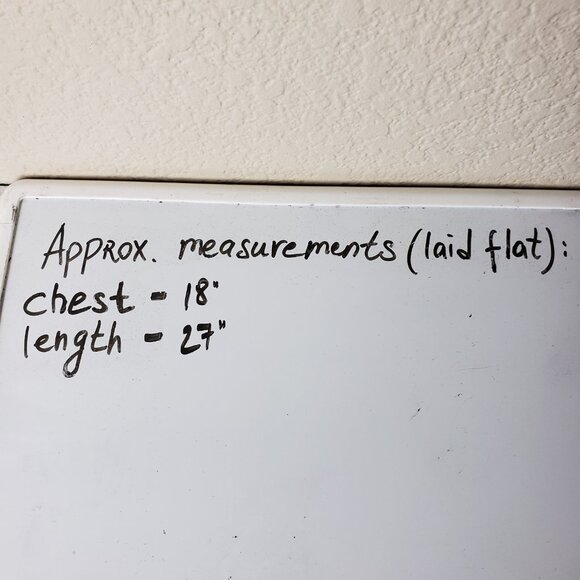 Approx. measurements (laid flat):
chest - 18"
length - 27"